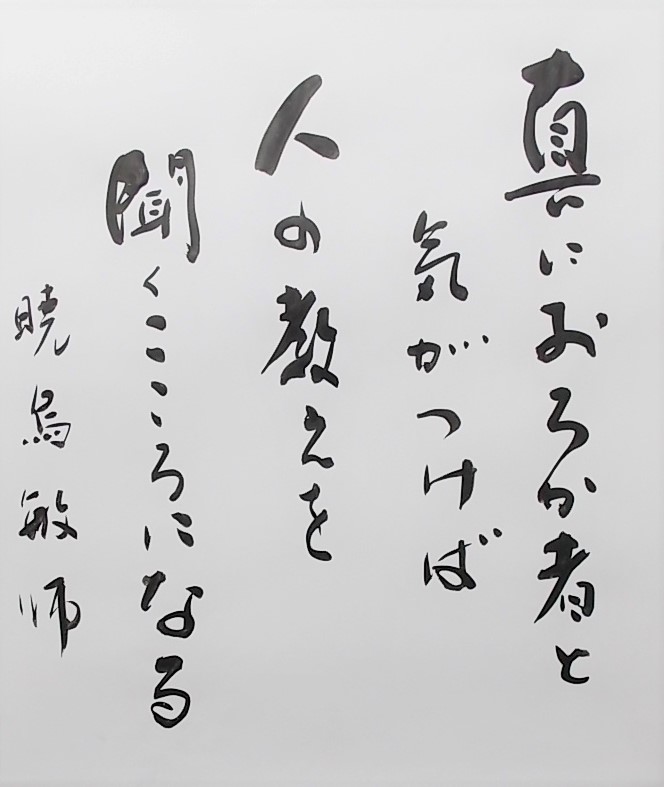 真におろか者と
気がつけば
人の教えを
聞くこころになる
暁烏敏師